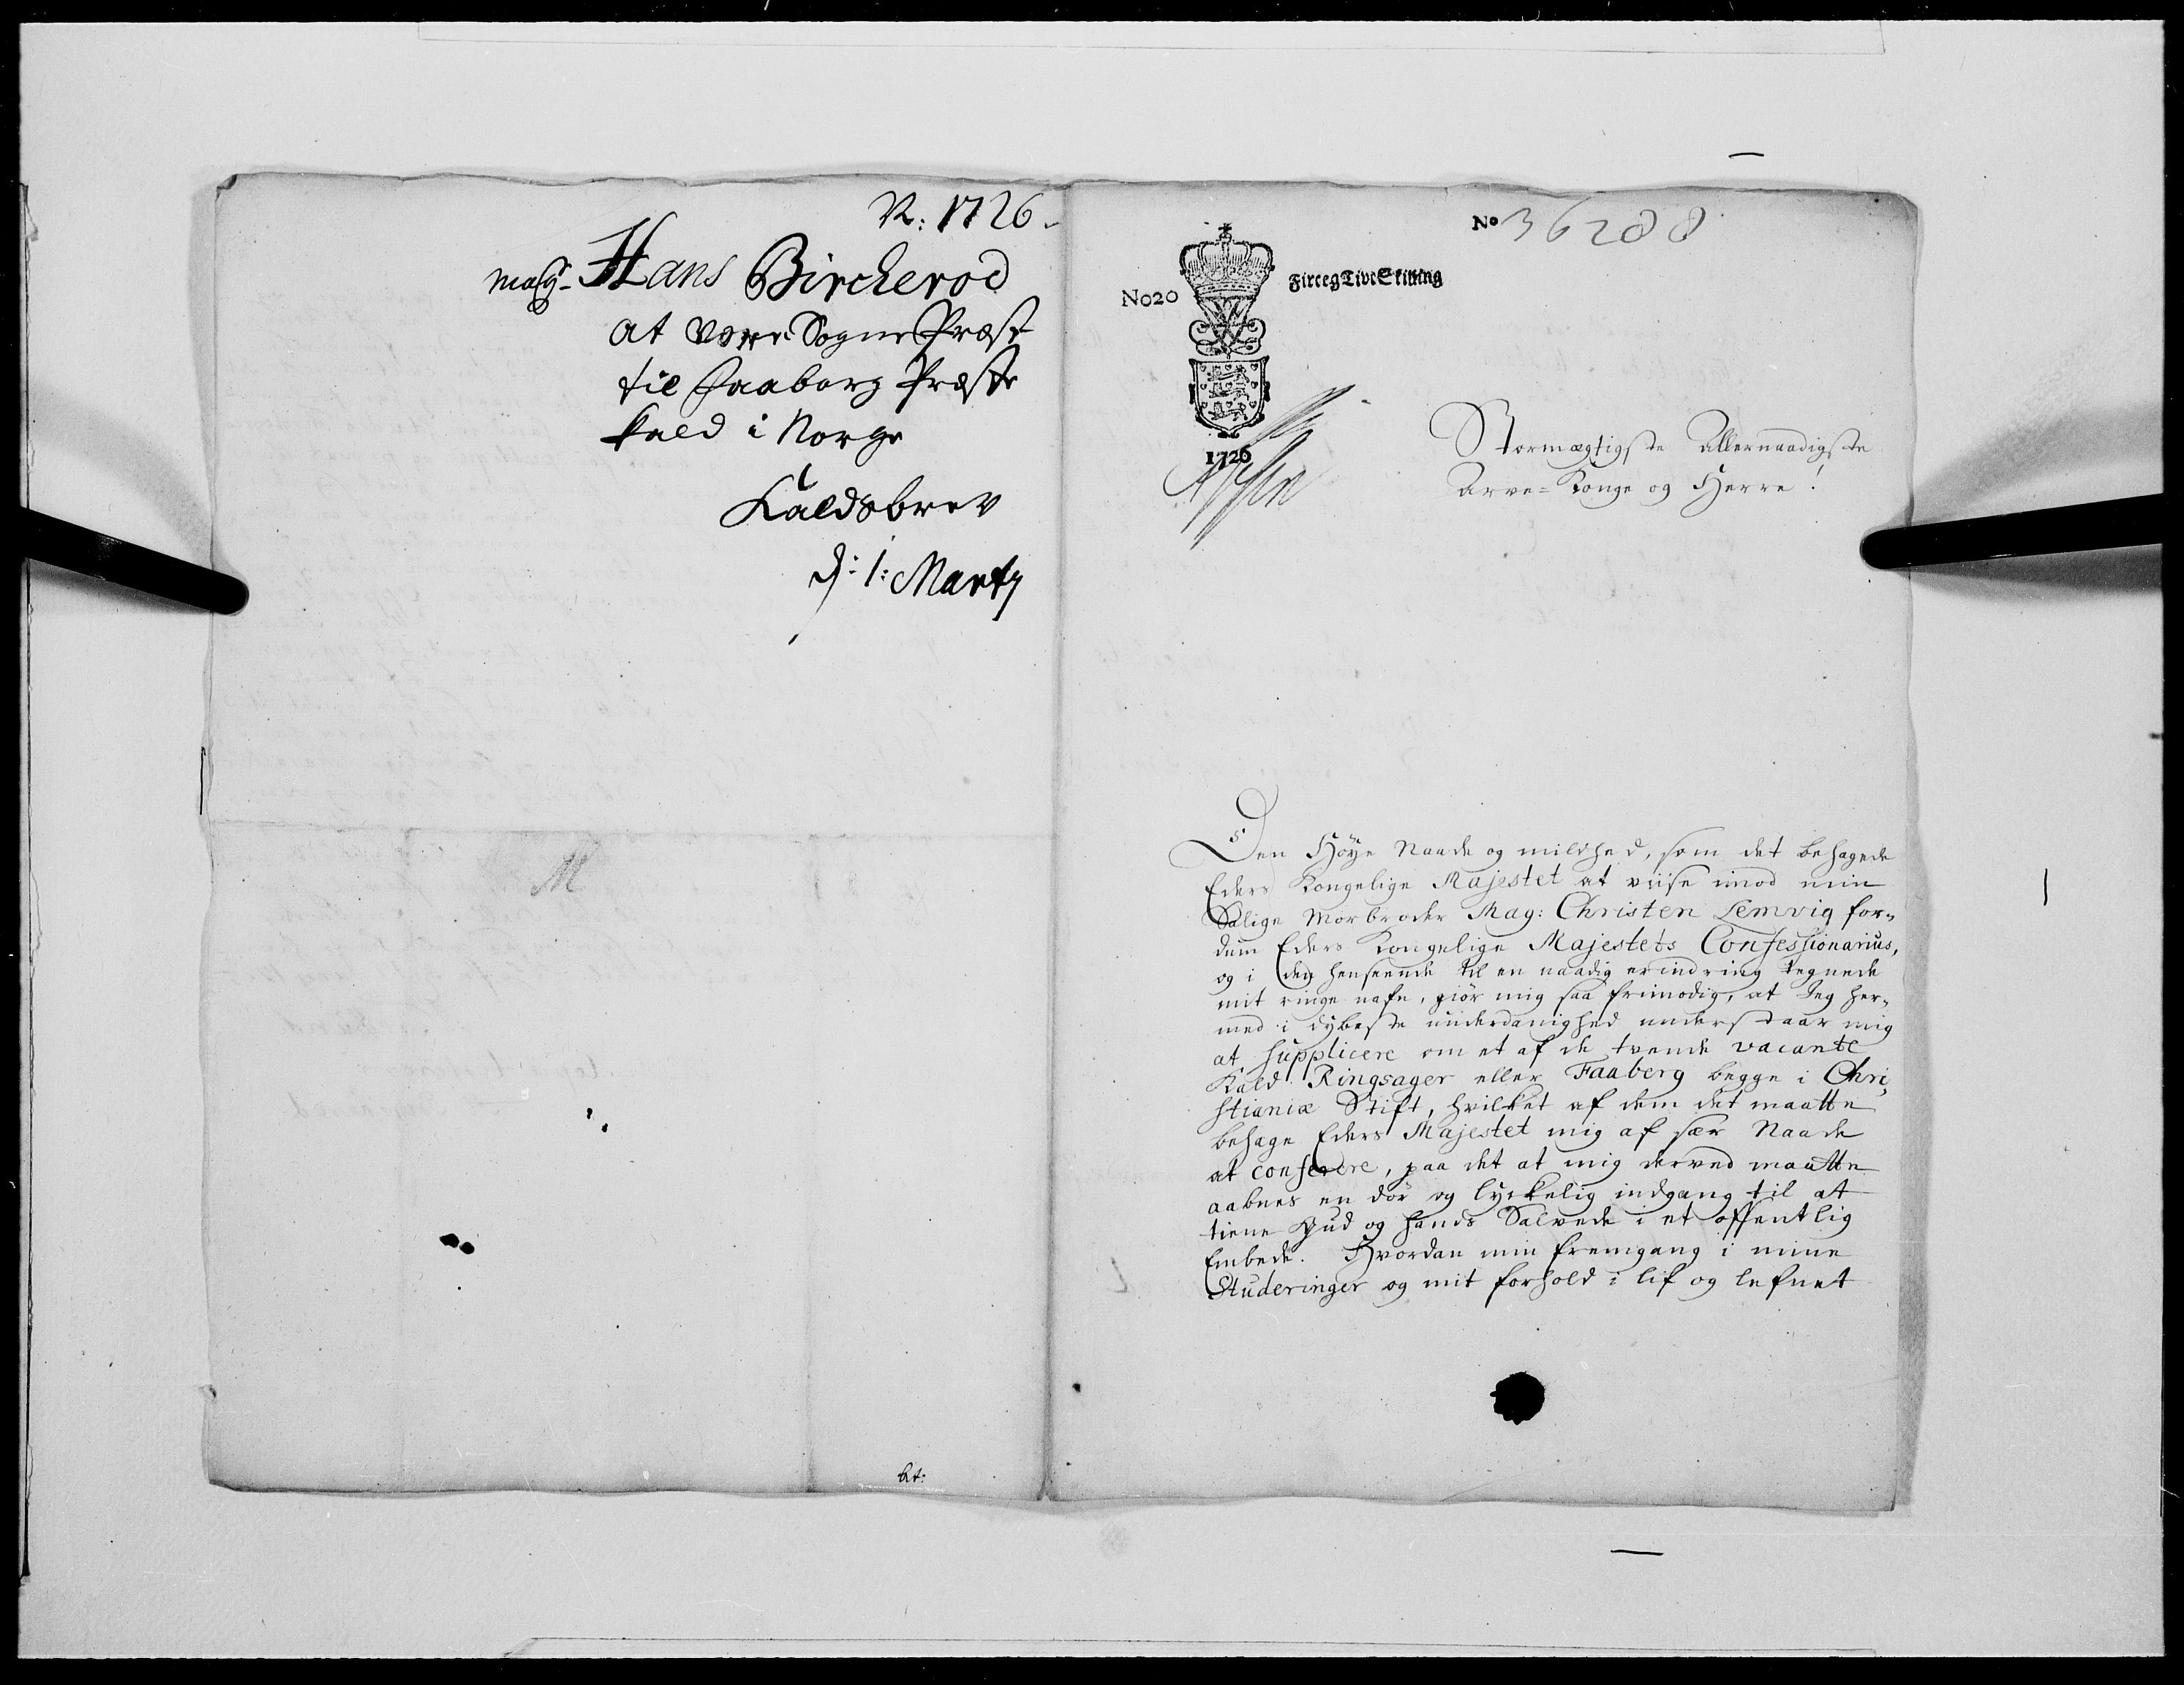 R: 1726.
Mag. Hans Bircherod
at være Sogne Præst
til Faaborg Præste
kald i Norge
Kaldsbrev
d: 1: Martij
M
bt:
No 36288
No 20
Fireeg Tive Skilling
1726
Stormægtigste Allernaadigste
Arve-Konge og Herre!
Den Høye Naade og mildhed, som det behagede
Eders Kongelige Majestet at viise imod min
Salige Morbroder Mag: Christen Lemvig for-
dum Eders Kongelige Majestets Confessionarius,
og i den henseende til en naadig erindring tegnede
mit ringe nafn, giør mig saa frimodig, at Jeg her-
med i dybeste underdanighed understaar mig
at supplicere om et af de tvende vacante
Kald Ringsager eller Faaberg begge i Chri-
stianiæ Stift, hvilket af dem det maatte
behage Eders Majestet mig af sær Naade
at conferere, paa det at mig derved maatte
aabnes en dør og lyckelig indgang til at
tiene Gud og hands Salvede i et offentlig
Embede. Hvordan min fremgang i mine
Studeringer og mit forhold i lif og lefnet